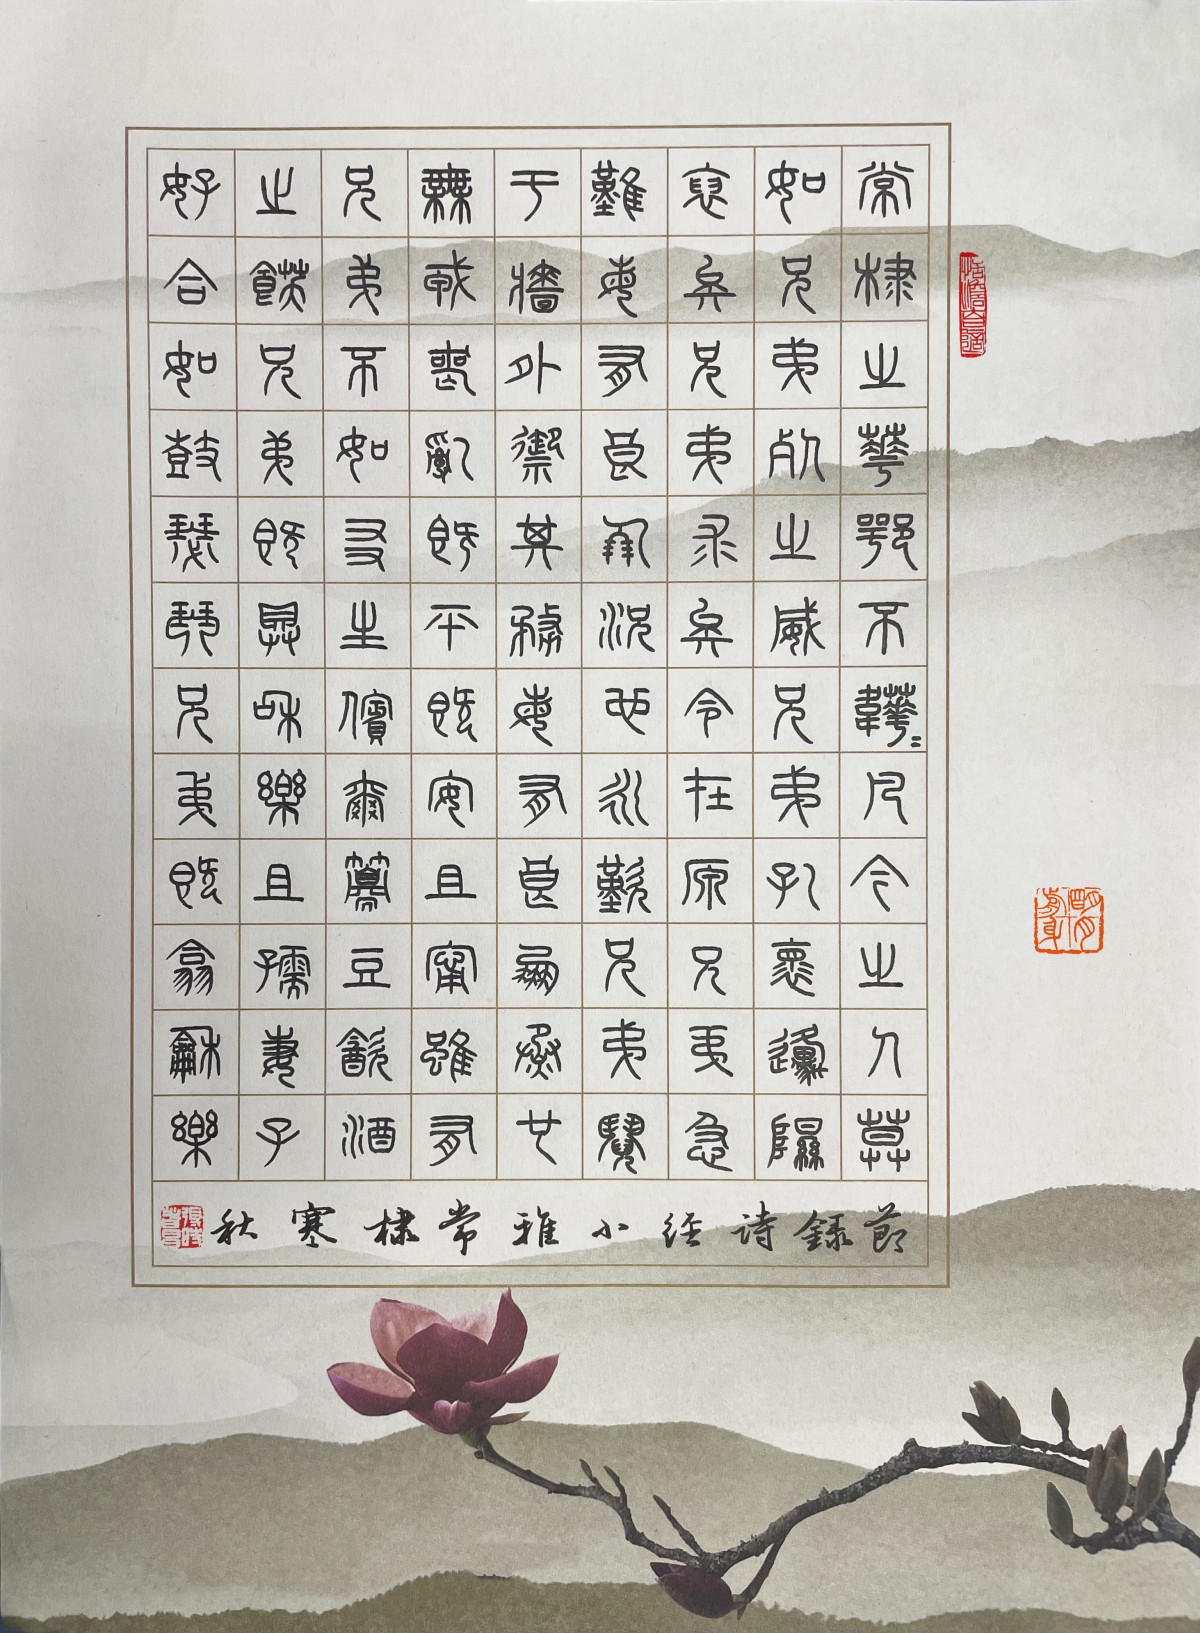 常棣之華鄂不韡〻凡今之人莫
如兄弟死之威兄弟孔懷邍隰
裒矣兄弟求矣令在原兄弟急
難每有良朋況也永歎兄弟鬩
于牆外禦其務每有良朋烝也
無戎喪亂既平既安且寧雖有
兄弟不如友生儐爾籩豆飲酒
之飫兄弟既具和樂且孺妻子
好合如鼓瑟琴兄弟既翕龢樂
節錄詩經小雅常棣寒秋